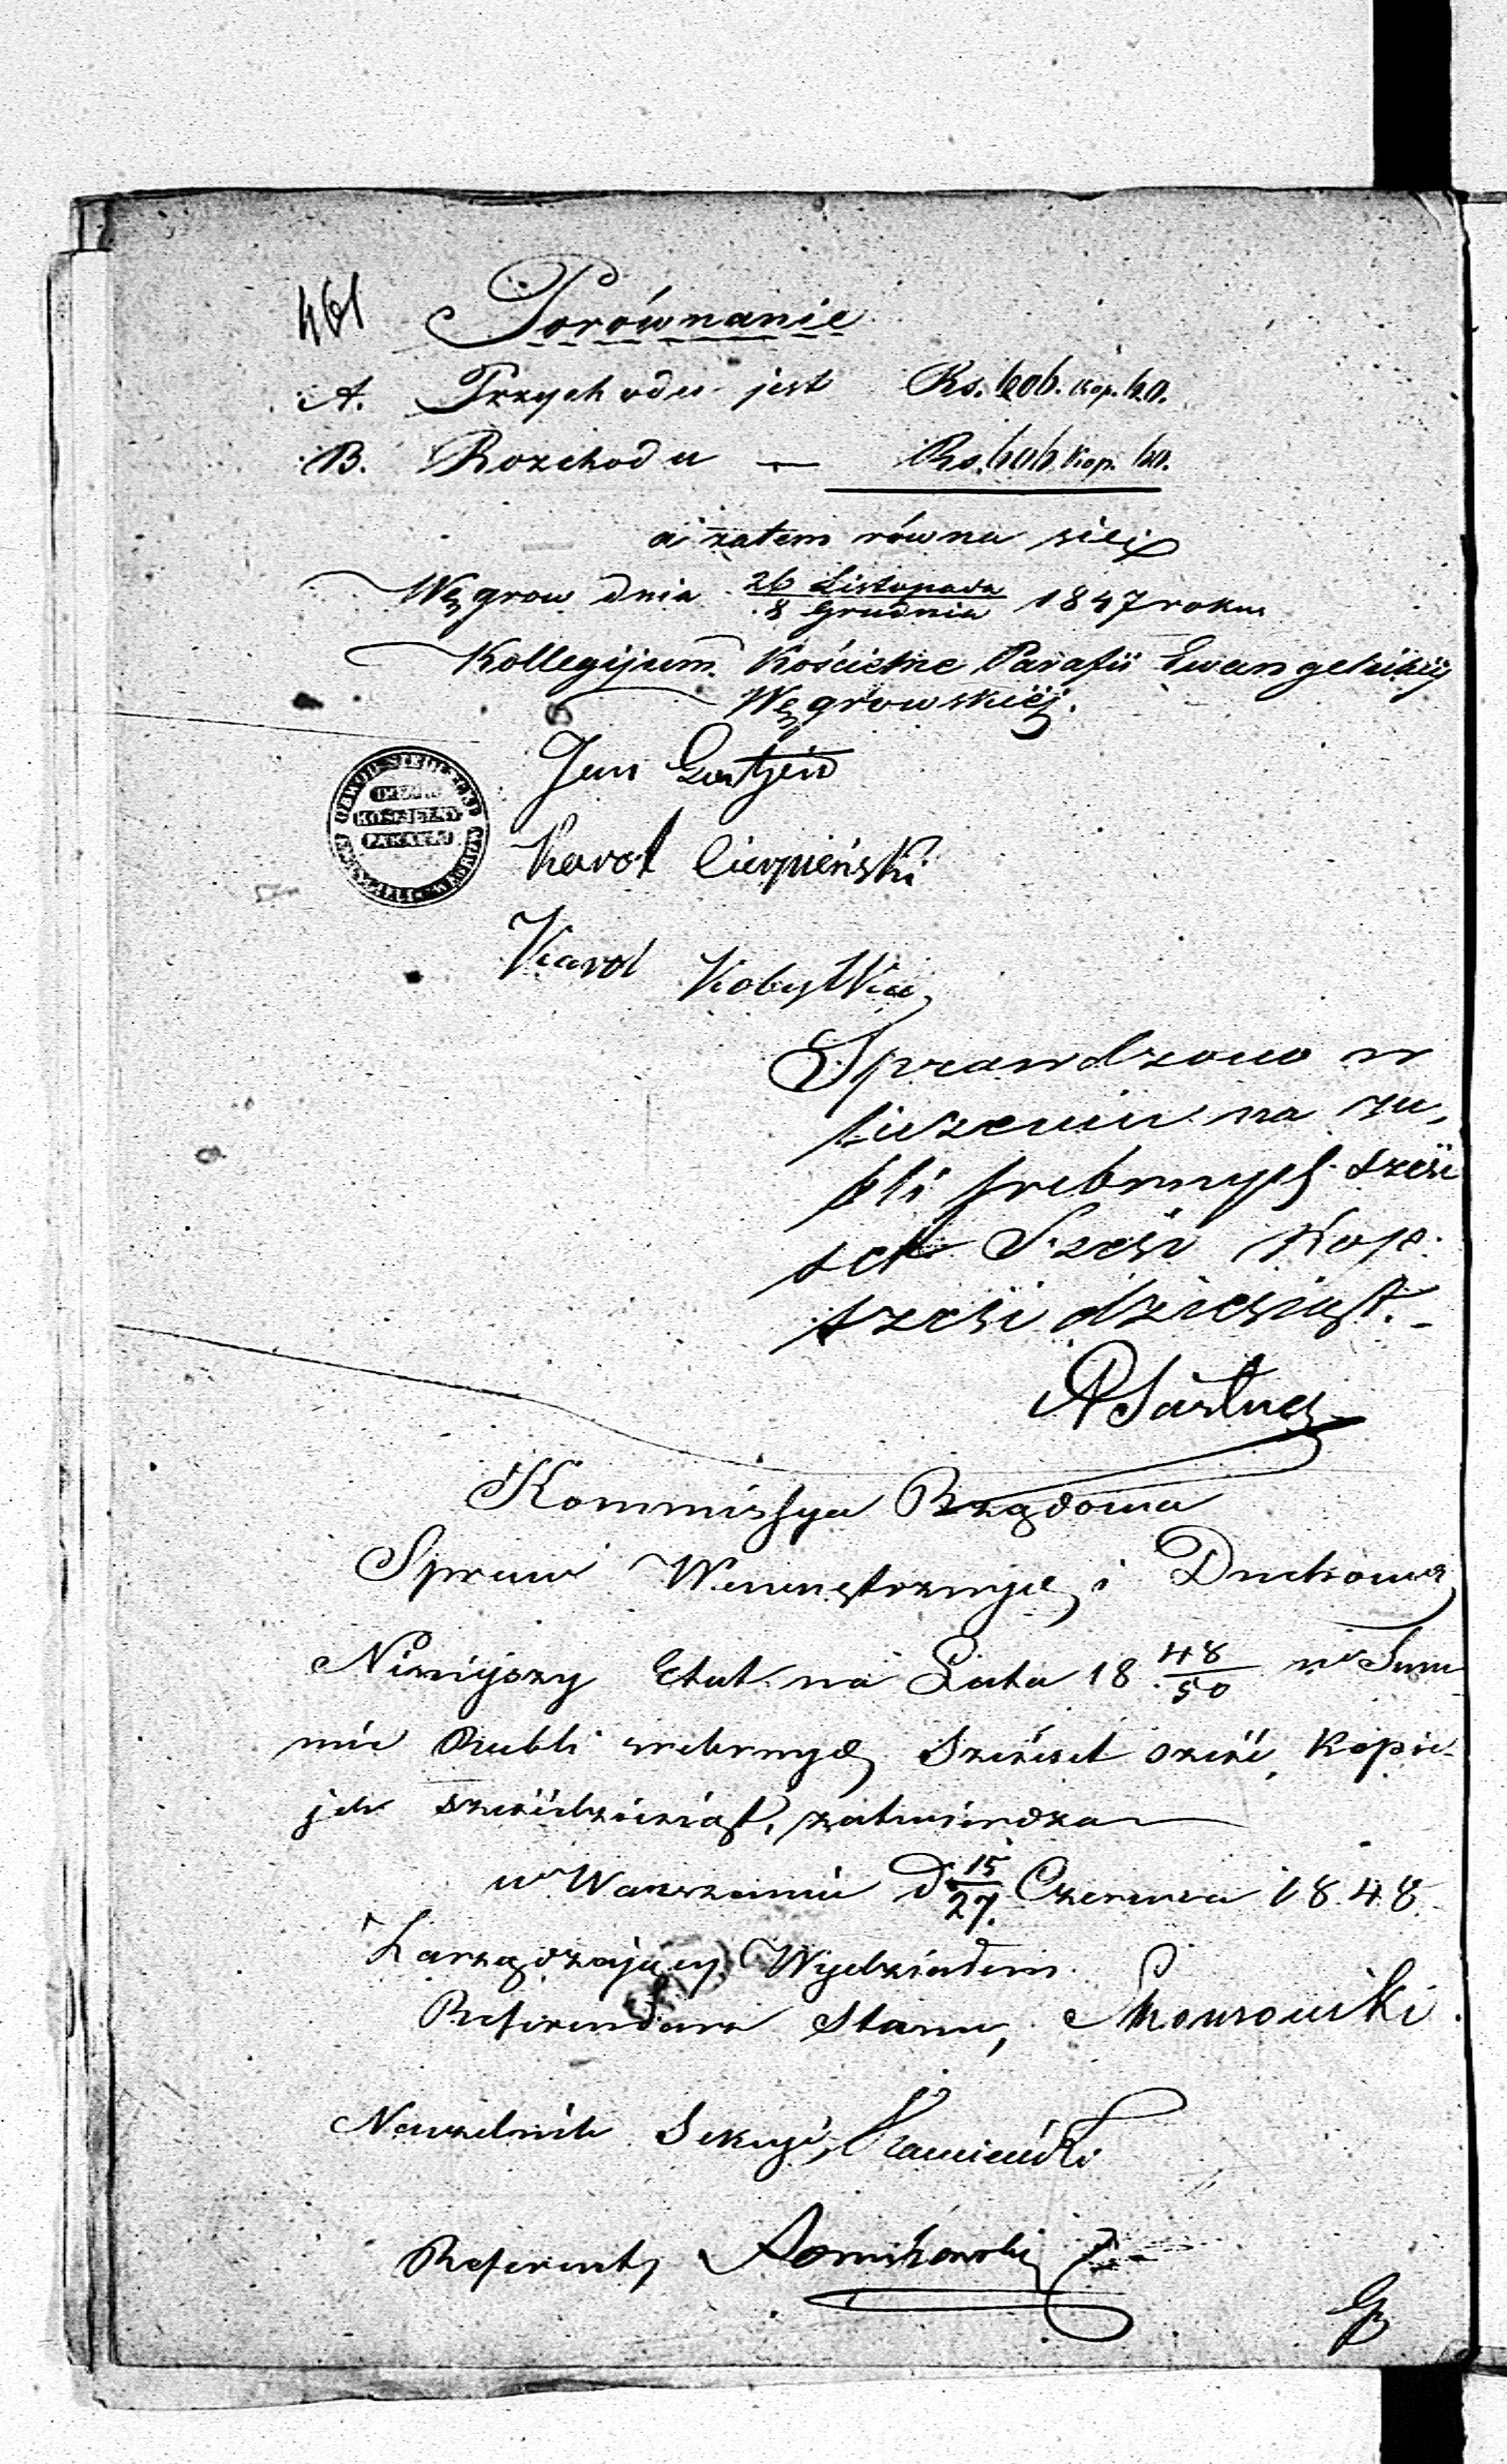 461 Porównanie
A. Przychodu jest Rs. 606. kop. 60.
B. Rozchodu — Rs. 606. kop. 60.
a zatem równa się
Węgrow dnia 26 Listopada / 8 Grudnia 1847 roku
Kollegijum Kościelne Parafii Ewangelickiej
Węgrowskiej.
Jan
OBWÓD SIEDLECKI
KOŚCIELNY
Karol Cierpieński
Karol Kobyłka
Sprawdzono w
liczeniu na ru,
bli srebrnych sześć
set Sześć Kop.
sześćdziesiąt.
Kommissya Rządowa
Spraw Wewnętrznych i Duchownych
Niniejszy Etat na Lata 18 48/50 w Sum
mie Rubli srebrnych Sześćset sześć, Kopie-
jek sześćdziesiąt, zatwierdza
w Warszawie D. 15/27. Czerwca 1848.
Zarządzający Wydziałem
Referendarz Stanu,
Naczelnik Sekcyi, Kamieński
Referent,